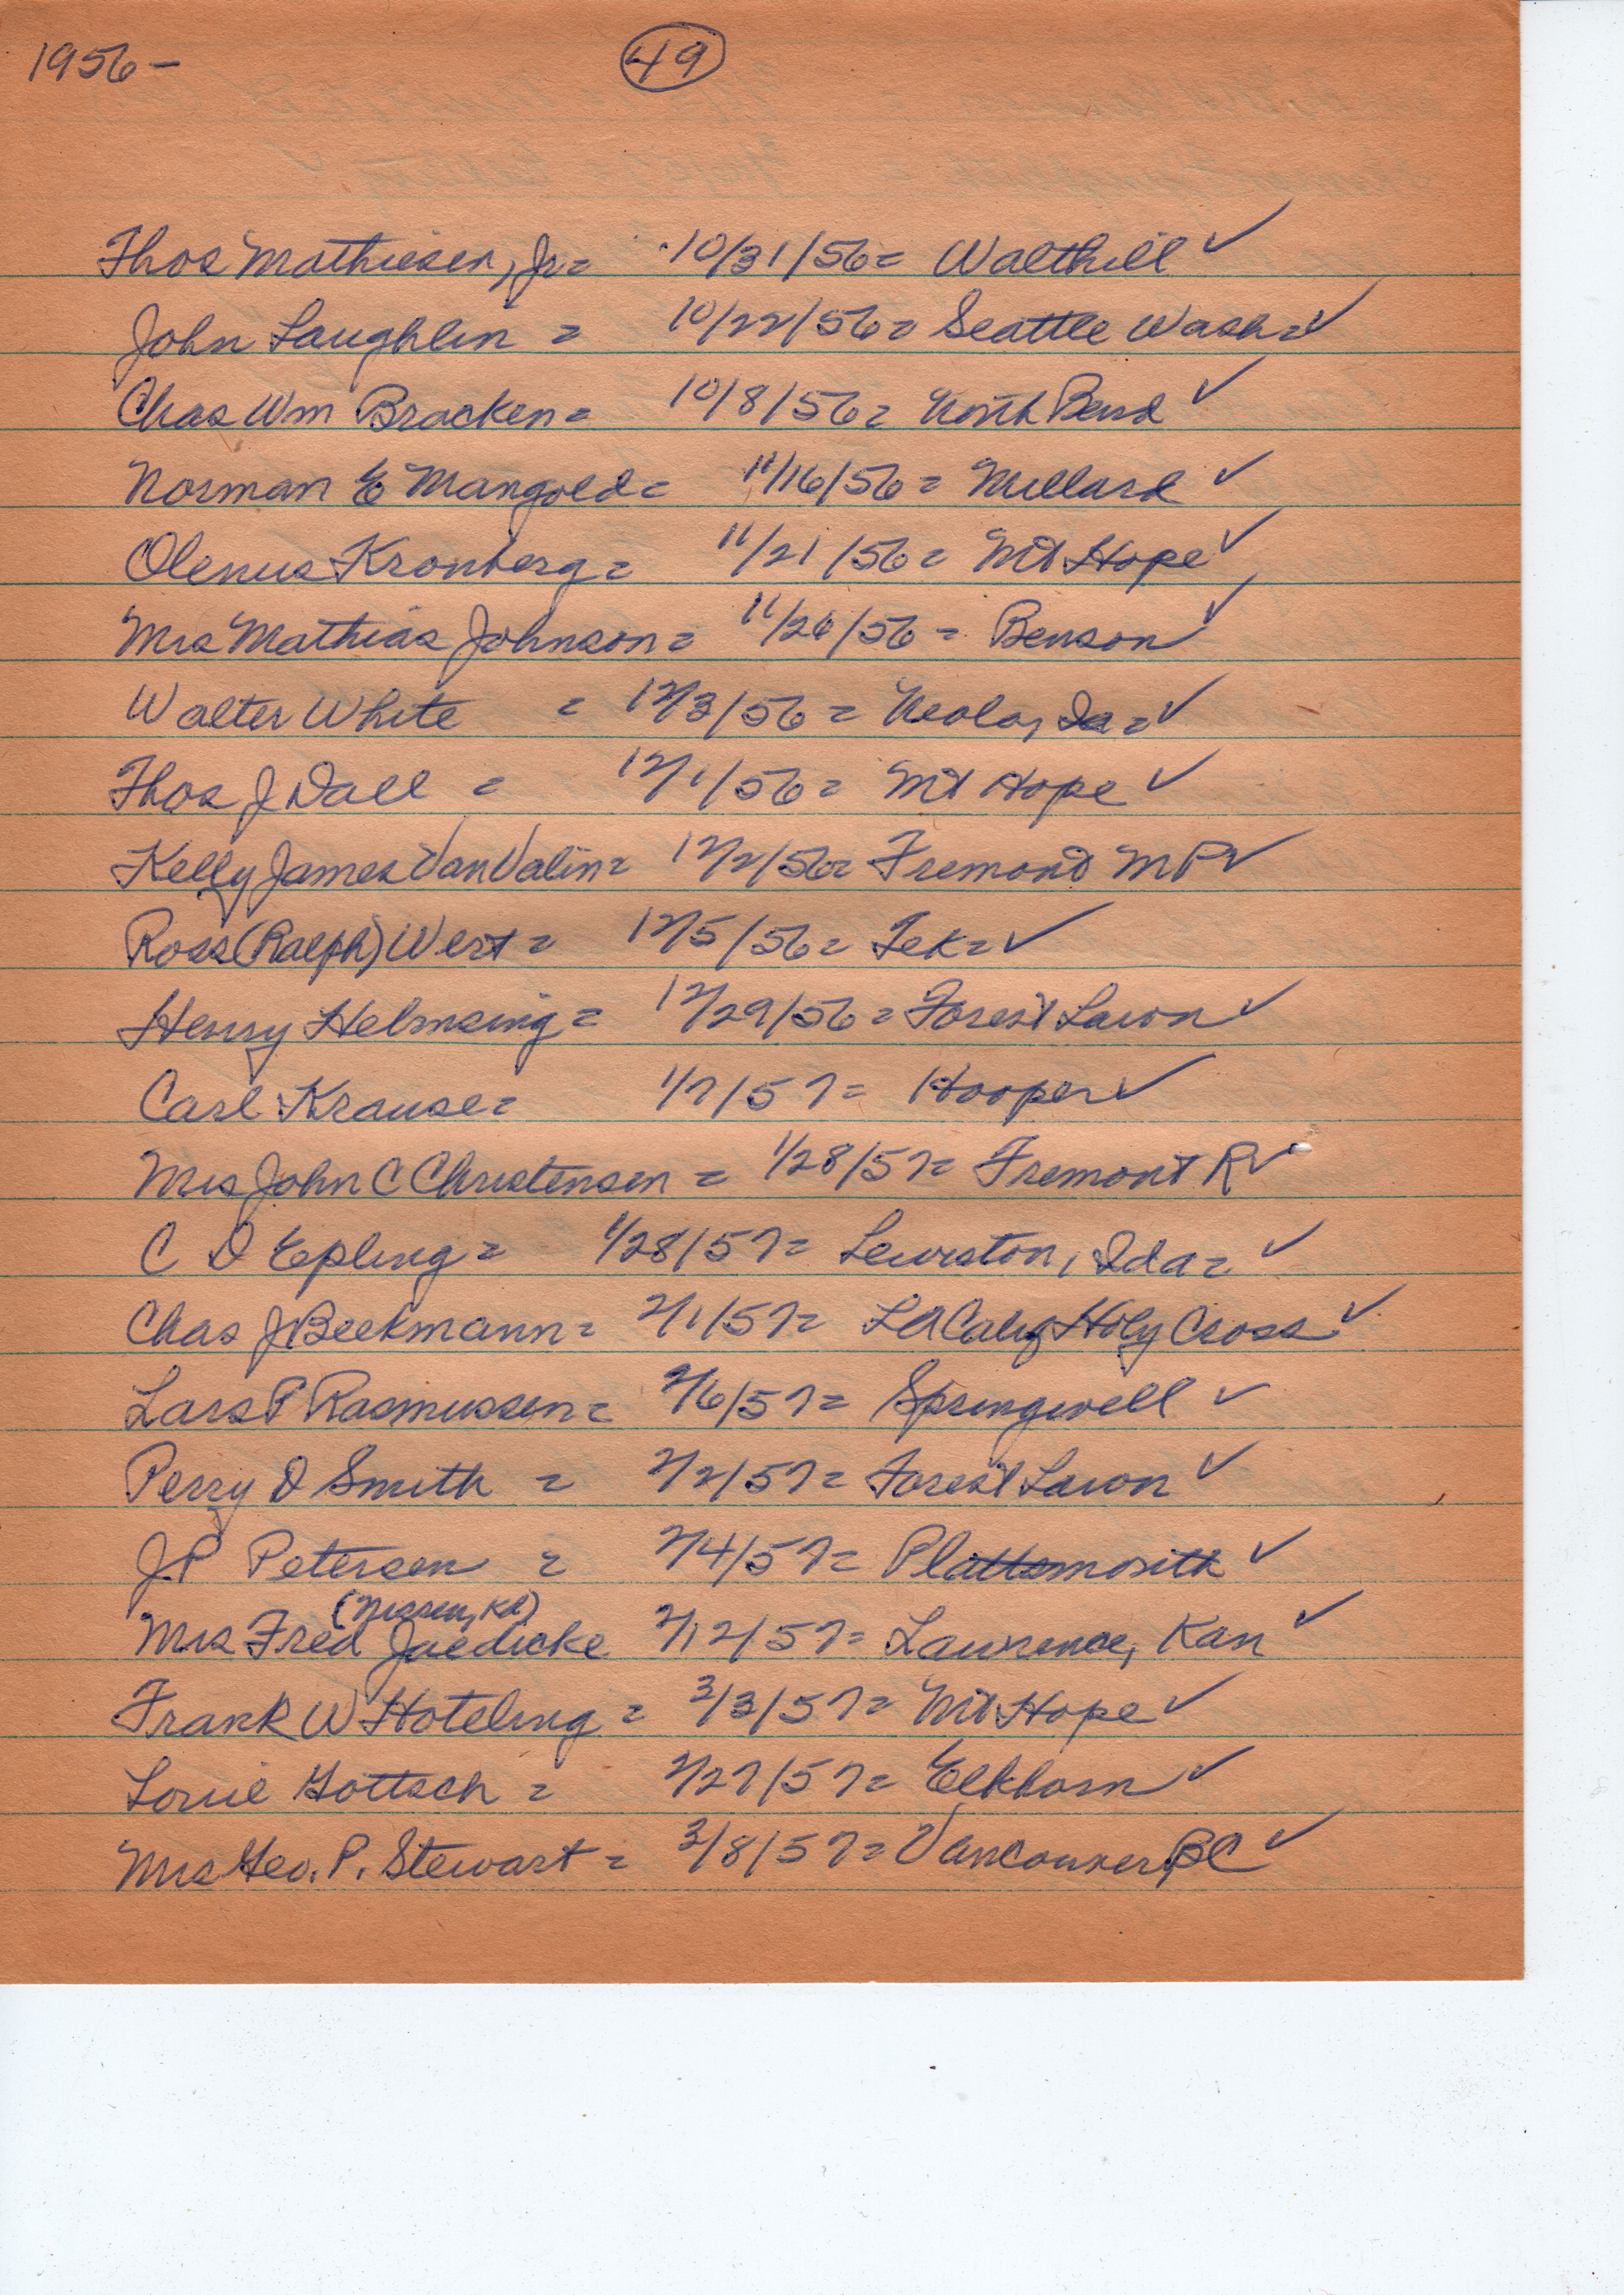 1956 - 49
Thos Mathiesen, Jr = 10/31/56 = Walthill ✓
John Laughlin = 10/22/56 = Seattle Wash = ✓
Chas Wm Bracken = 10/8/56 = North Bend ✓
Norman E Mangold = 11/16/56 = Millard ✓
Olenus Kronberg = 11/21/56 = Mt Hope ✓
Mrs Mathias Johnson = 11/26/56 = Benson ✓
Walter White = 12/3/56 = Neola, Ia = ✓
Thos J Dall = 12/1/56 = Mt Hope ✓
Kelly James Van Valin = 12/2/56 = Fremont MP ✓
Ross (Ralph) Wert = 12/5/56 = Tek = ✓
Henry Helmsing = 12/29/56 = Forest Lawn ✓
Carl Krause = 1/7/57 = Hooper ✓
Mrs John C Christensen = 1/28/57 = Fremont R ✓
C D Epling = 1/28/57 = Lewiston, Ida = ✓
Chas J Beekmann = 2/1/57 = LA Calif Holy Cross ✓
Lars P Rasmussen = 2/6/57 = Springwell ✓
Perry D Smith = 2/2/57 = Forest Lawn ✓
J P Petersen = 2/4/57 = Plattsmouth ✓
(Nissen, Kd)
Mrs Fred Jaedicke 2/12/57 = Lawrence, Kan ✓
Frank W Hoteling = 3/3/57 = Mt Hope ✓
Louie Gottsch = 2/27/57 = Elkhorn ✓
Mrs Geo. P. Stewart = 3/8/57 = Vancouver, BC ✓